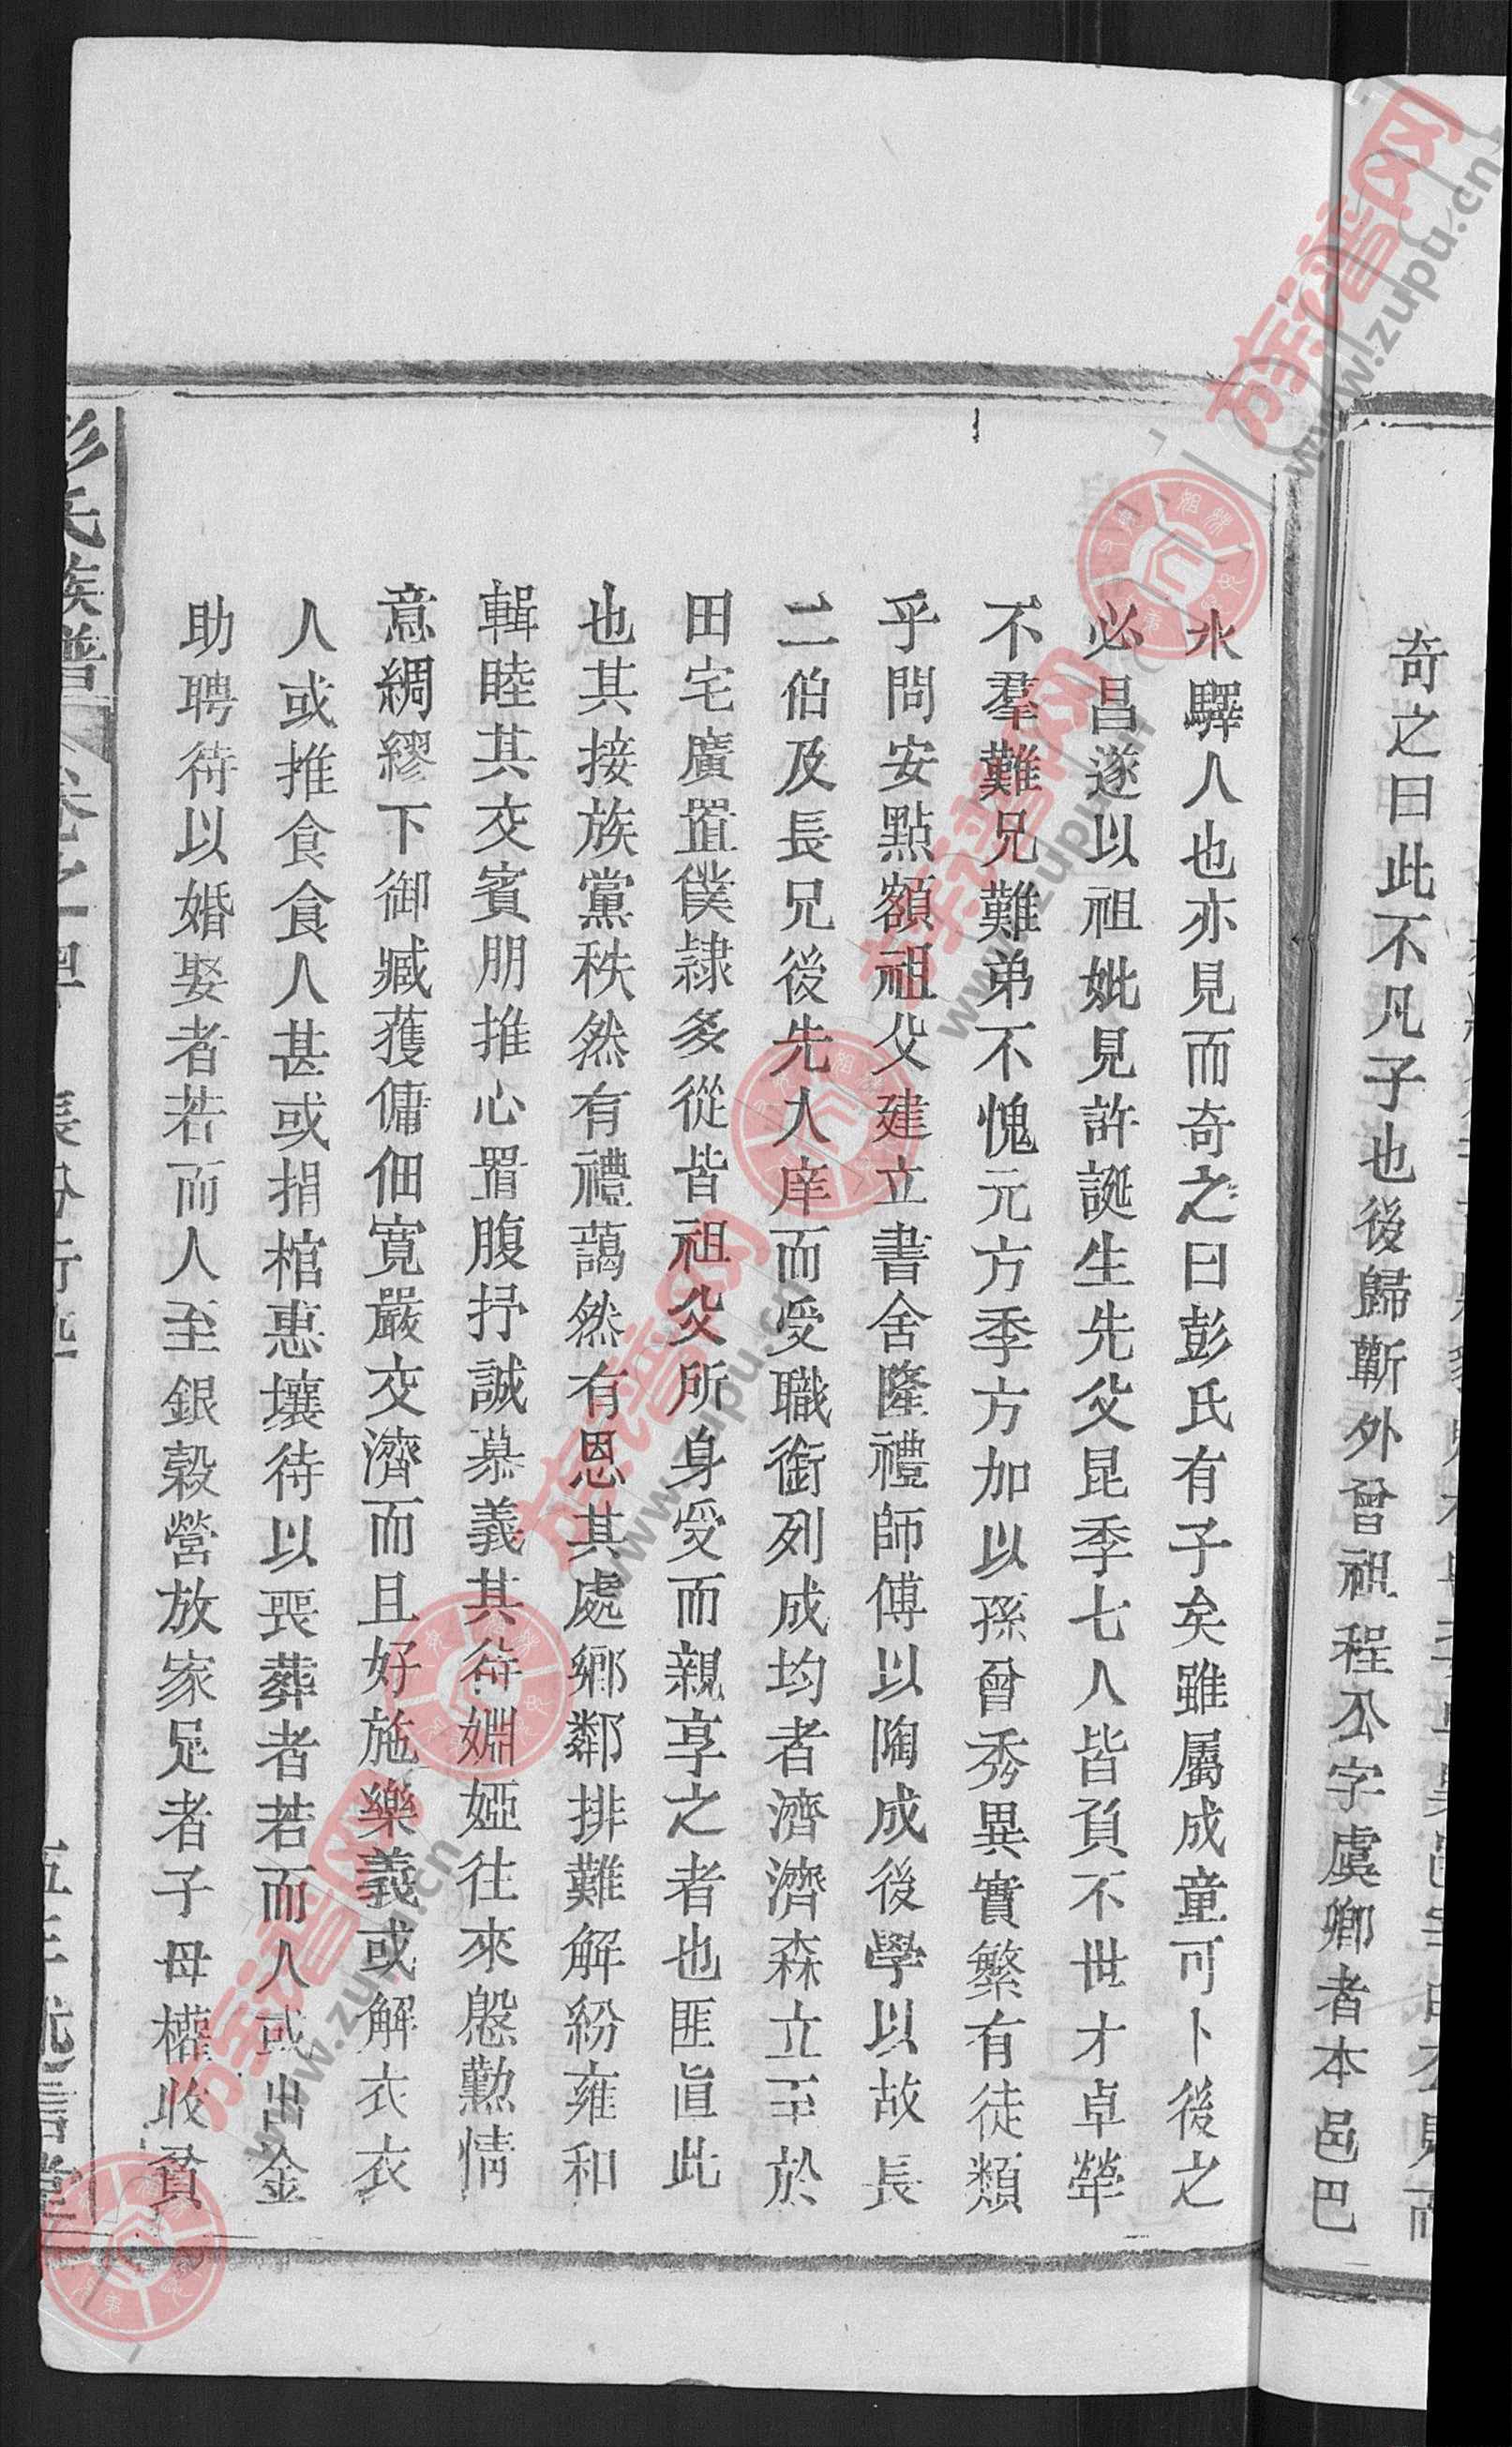 奇之曰此不凡子也後歸蘄外曾祖程公字虞卿者本邑巴
水驛人也亦見而奇之曰彭氏有子矣雖屬成童可卜後之
必昌遂以祖妣見許誕生先父昆季七人皆負不世才卓犖
不羣難兄難弟不愧元方季方加以孫曾秀異實繁有徒類
乎問安點額祖父建立書舍隆禮師傅以陶成後學以故長
二伯及長兄後先入庠而受職銜列成均者濟濟森立至於
田宅廣置僕隷多從皆祖父所身受而親享之者也匪直此
也其接族黨秩然有禮藹然有恩其處鄉鄰排難解紛雍和
輯睦其交賓朋推心置腹抒誠慕義其待姻婭往來慇懃情
意綢繆下御臧獲傭佃寬嚴交濟而且好施樂義或解衣衣
人或推食食人甚或捐棺惠壤待以喪葬者若而人或出金
助聘待以婚娶者若而人至銀榖營放家足者子母權收貧
彭氏族譜
卷之
信堂
族谱网
www.zupu.cn